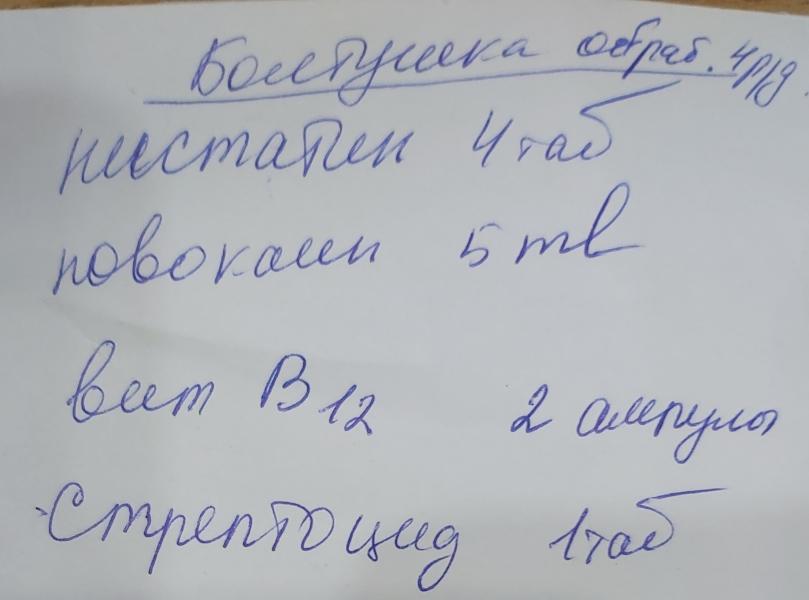 Болтушка обраб. 4 р/д.
нистатин 4 таб
новокаин 5 мл
вит В12 2 ампулы
Стрептоцид 1 таб